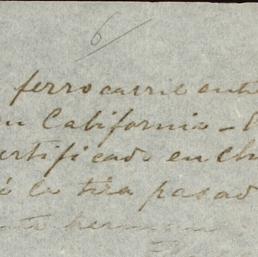 6
ferrocarril ent
en California -
ertificado en Ch
é la tira pasad
herman